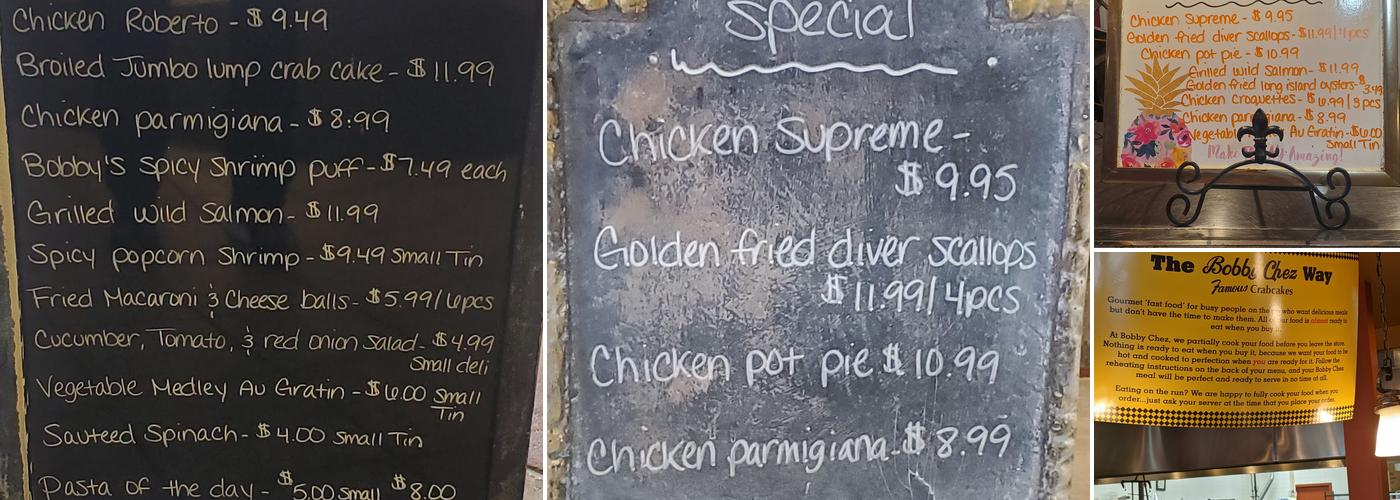 Chicken Roberto - $9.49
Broiled Jumbo lump crab cake - $11.99
Chicken parmigiana - $8.99
Bobby's Spicy Shrimp puff - $7.49 each
Grilled wild Salmon - $11.99
Spicy popcorn Shrimp - $9.49 Small Tin
Fried Macaroni & Cheese balls - $5.99/6pcs
Cucumber, Tomato, & red onion Salad - $4.99
Small deli
Vegetable Medley Au Gratin - $6.00 Small
Tin
Sauteed Spinach - $4.00 Small Tin
Pasta of the day - $5.00 Small $8.00
Special
Chicken Supreme -
$9.95
Golden fried diver scallops
$11.99/4pcs
Chicken pot pie $10.99
Chicken parmigiana - $8.99
Chicken Supreme - $9.95
Golden fried diver scallops - $11.99/4pcs
Chicken pot pie - $10.99
Grilled wild Salmon - $11.99
Golden fried long island oysters - $3.49
Chicken croquettes - $6.99/3pcs
Chicken parmigiana - $8.99
Au Gratin - $6.00
Small Tin
Amazing!
The Bobby Chez Way
Famous Crabcakes
Gourmet 'fast food' for busy people on the who want delicious meals
but don't have the time to make them. All our food is almost ready to
eat when you buy it.
At Bobby Chez, we partially cook your food before you leave the store.
Nothing is ready to eat when you buy it, because we want your food to be
hot and cooked to perfection when you are ready for it. Follow the
reheating instructions on the back of your menu, and your Bobby Chez
meal will be perfect and ready to serve in no time at all.
Eating on the run? We are happy to fully cook your food when you
order...just ask your server at the time that you place your order.